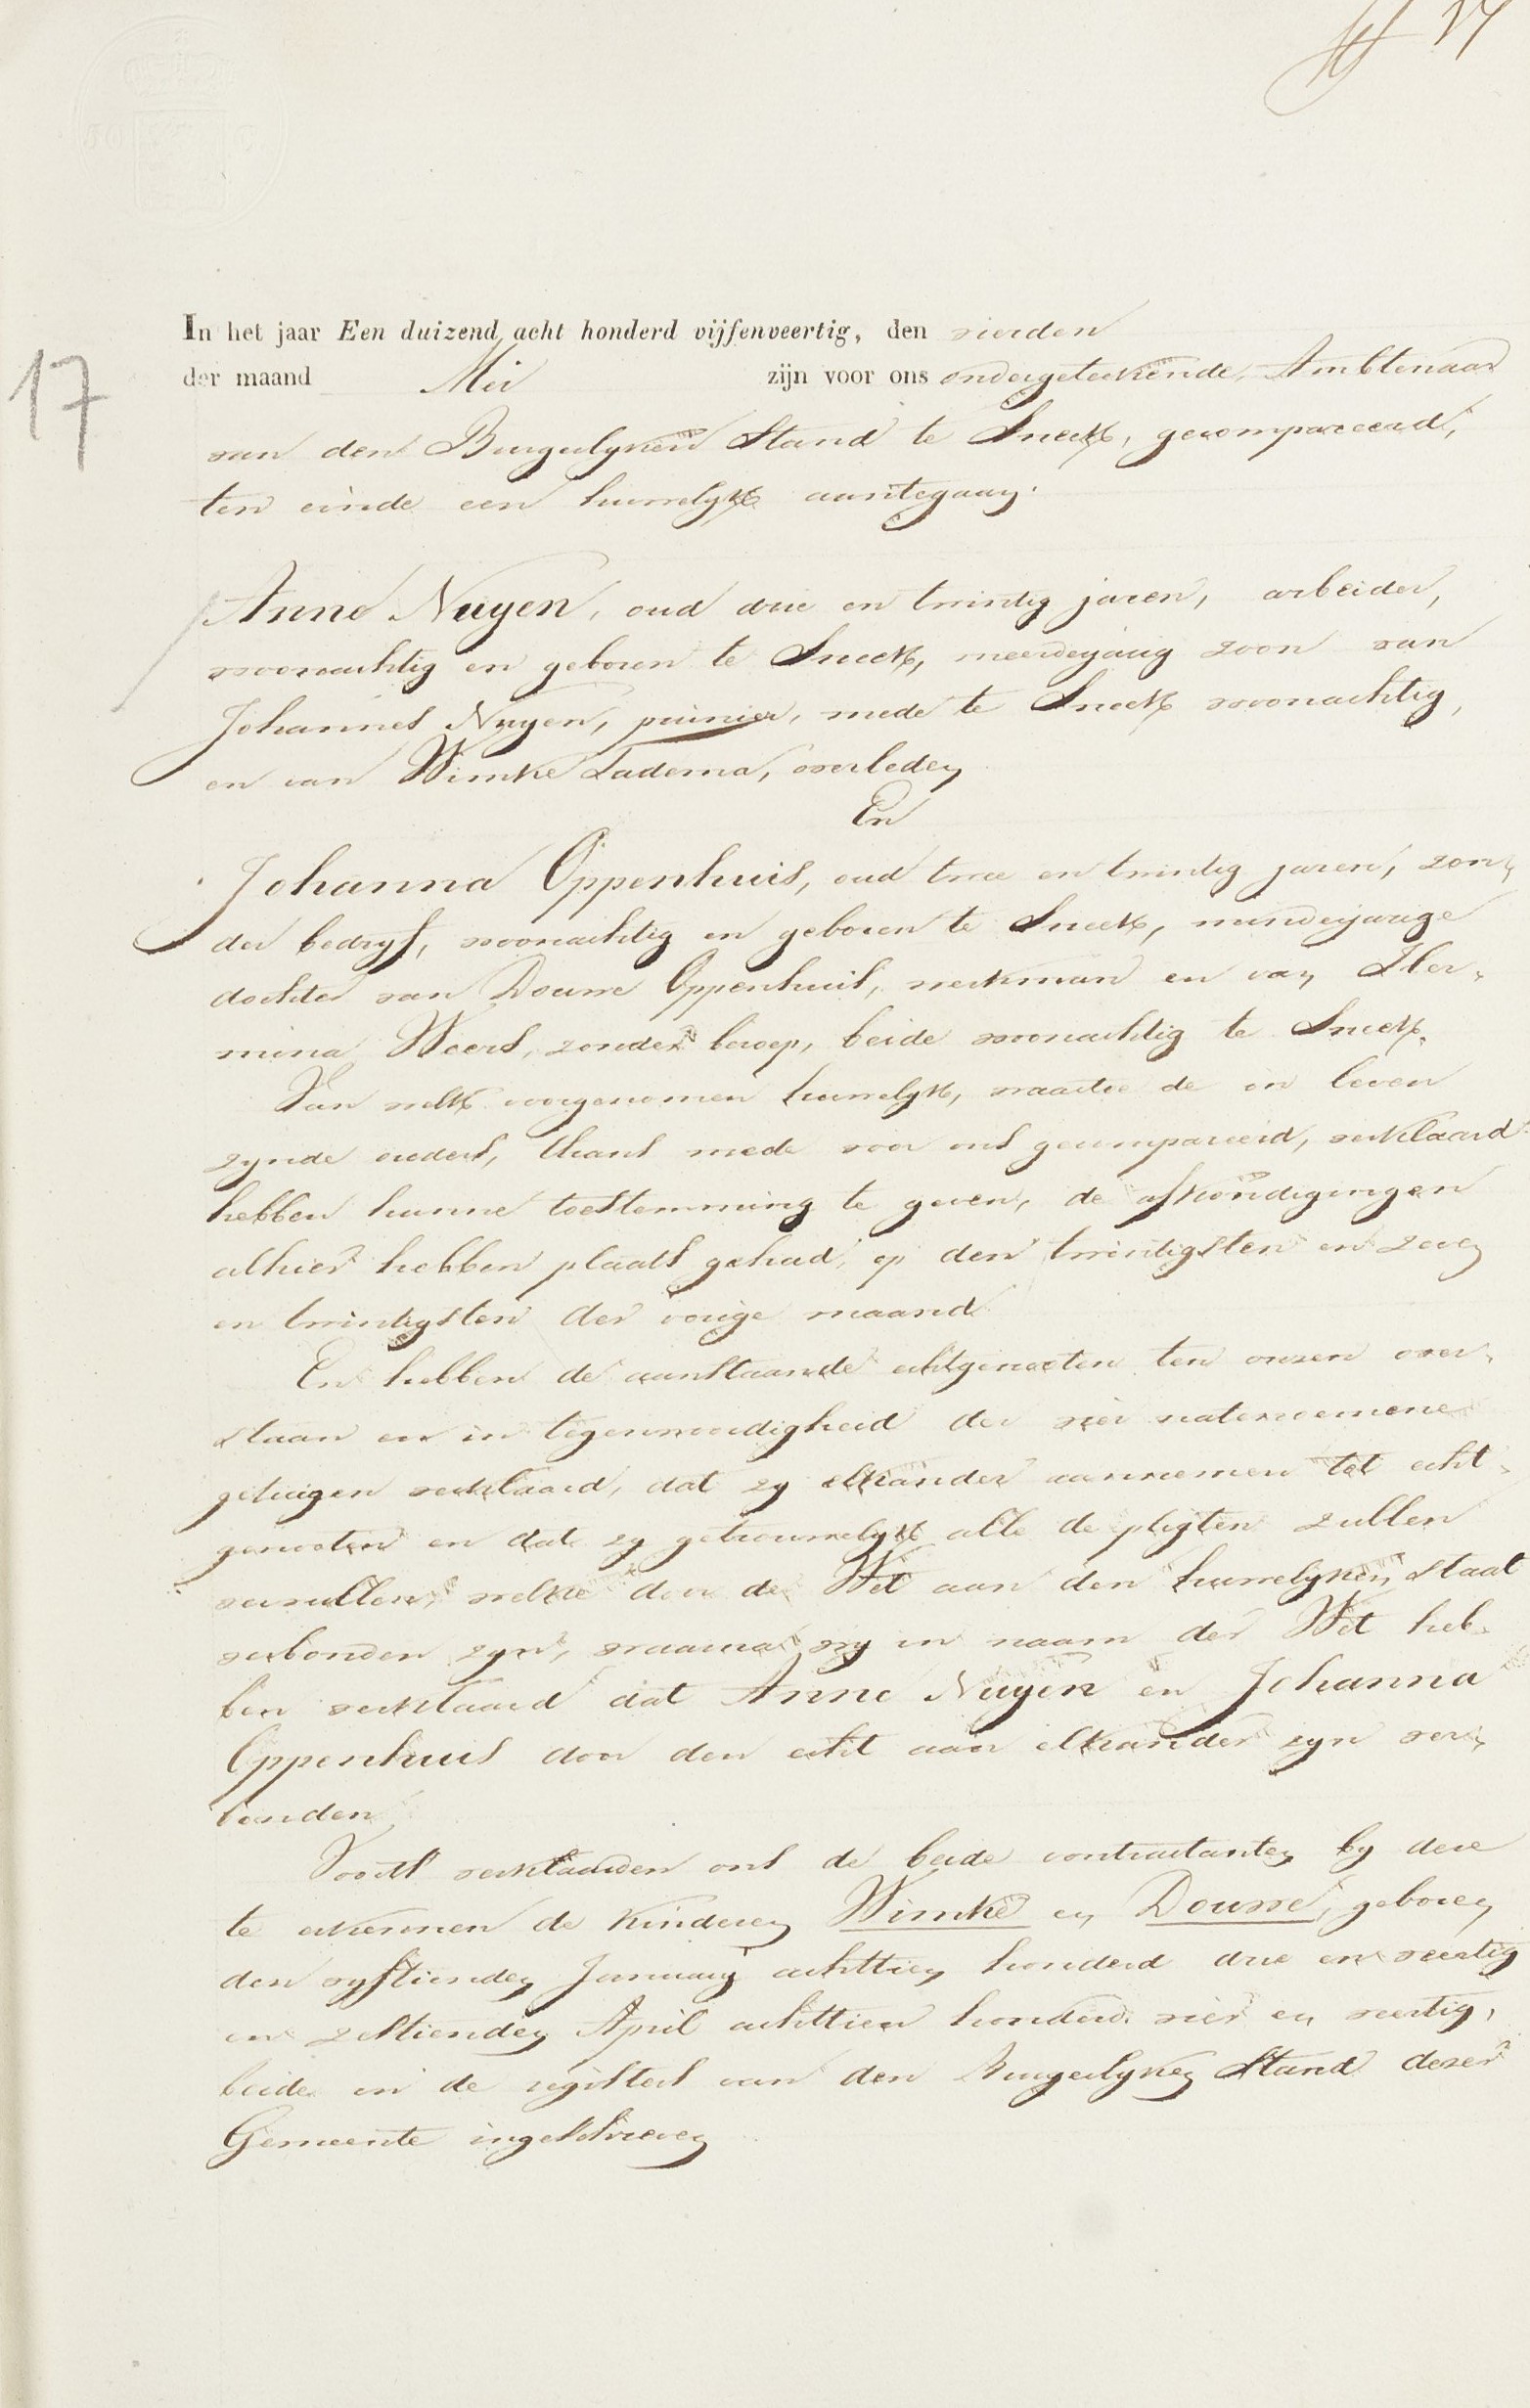 17
In het jaar Een duizend acht honderd vijfenveertig, den vierden
17
der maand Mei zijn voor ons ondergeteekende, Ambtenaar
van den Burgerlyken Stand te Sneek, gecompareerd,
ten einde een huwelyk aantegaan:
Anne Nuyen, oud drie en twintig jaren, arbeider,
woonachtig en geboren te Sneek, meerderjarig zoon van
Johannes Nuyen, puinier, mede te Sneek woonachtig,
en van Wimke Tadema, overleden
En
Johanna Oppenhuis, oud twee en twintig jaren, zon„
der bedryf, woonachtig en geboren te Sneek, minderjarige
dochter van Douwe Oppenhuis, werkman en van Her„
mina Weers, zonder beroep, beide woonachtig te Sneek.
Van welk voorgenomen huwelyk, waartoe de in leven
zynde ouders, thans mede voor ons gecompareerd, verklaard
hebben hunne toestemming te geven, de afkondigingen
alhier hebben plaats gehad, op den twintigsten en zeven
en twintigsten der vorige maand
En hebben de aanstaande echtgenooten ten onzen over„
staan en in tegenwoordigheid der vier natenoemene
getuigen verklaard, dat zy elkander aannemen tot echt„
genooten en dat zy getrouwelyk alle de pligten zullen
vervullen, welke door de Wet aan den huwelyken staat
verbonden zyn, waarna wy in naam der Wet heb„
ben verklaard dat Anne Nuyen en Johanna
Oppenhuis door den echt aan elkander zyn ver„
bonden
Voorts verklaarden ons de beide contractanten by deze
te erkennen de kinderen Wimke en Douwe, geboren
den vyftienden January achttien honderd drie en veertig
en zestienden April achttien honderd vier en veertig,
beide in de registers van den Burgerlyken Stand dezer
Gemeente ingeschreven